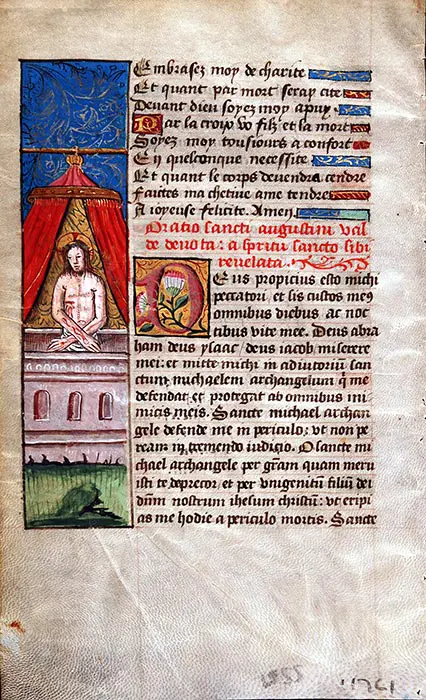 Embrasez moy de charite
Et quant par mort seray cite
Devant dieu soyez moy apuy
Par la croix vo filz et la mort
Soyez moy tousiours a confort
En quelconque necessite
Et quant le corps devendra cendre
Faictes ma chetive ame tendre
A ioyeuse felicite. Amen.
Oratio sancti augustini val
de devota: a spiritu sancto sibi
revelata.
Deus propicius esto michi
peccatori, et sis custos meus
omnibus diebus ac noc
tibus vite mee. Deus abra
ham deus ysaac, deus iacob, miserere
mei: et mitte michi in adiutoriu sanc
tum michaelem archangelum q me
defendat et protegat ab omnibus ini
micis meis. Sancte michael archan
gele defende me in periculo: ut non pe
ream in tremendo iudicio. O sancte mi
chael archangele per gram quam meru
isti te deprecor, et per unigenitu filiu dei
dnm nostrum ihesum christum: ut eripi
as me hodie a periculo mortis. Sancte